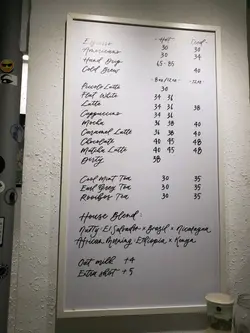 Espresso -Hot- -Iced-
Americano 30 30
Hand Drip 30 34
Cold Brew 65-85 40
-8oz/12oz- -12oz-
Piccolo Latte 30
Flat White 34 36
Latte 34 36 38
Cappuccino 34 36
Mocha 36 38 40
Caramel Latte 36 38 40
Chocolate 40 45 48
Matcha Latte 40 45 48
Dirty 38
Cool Mint Tea 30 35
Earl Grey Tea 30 35
Rooibos Tea 30 35
House Blend:
Nutty El Salvador × Brazil × Nicaragua
African Morning Ethiopia × Kenya
Oat milk +4
Extra shot +5